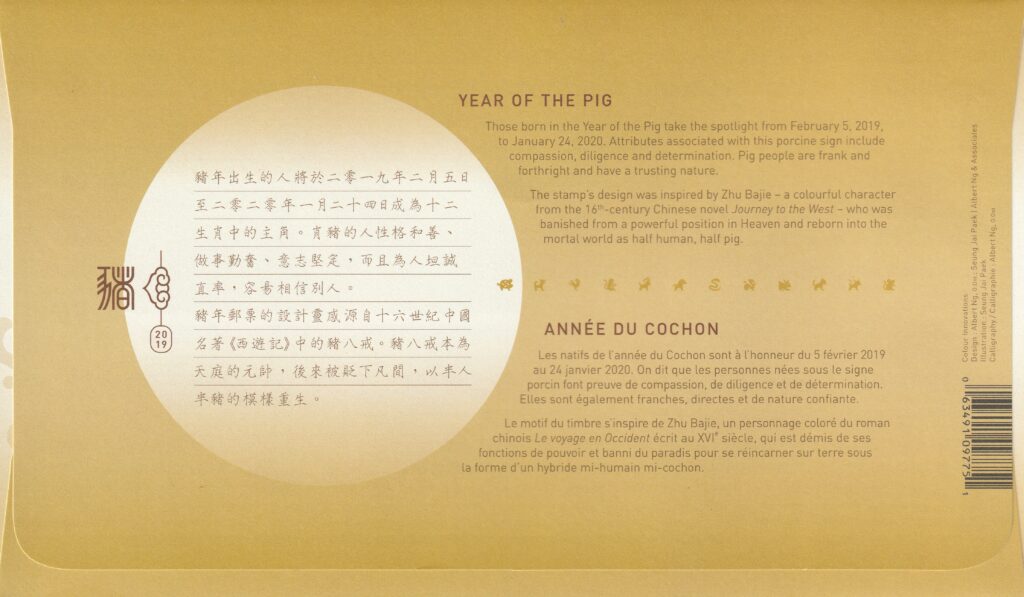 豬
20
19
豬年出生的人將於二零一九年二月五日
至二零二零年一月二十四日成為十二
生肖中的主角。肖豬的人性格和善、
做事勤奮、意志堅定，而且為人坦誠
直率，容易相信別人。
豬年郵票的設計靈感源自十六世紀中國
名著《西遊記》中的豬八戒。豬八戒本為
天庭的元帥，後來被貶下凡間，以半人
半豬的模樣重生。
YEAR OF THE PIG
Those born in the Year of the Pig take the spotlight from February 5, 2019,
to January 24, 2020. Attributes associated with this porcine sign include
compassion, diligence and determination. Pig people are frank and
forthright and have a trusting nature.
The stamp's design was inspired by Zhu Bajie – a colourful character
from the 16th-century Chinese novel Journey to the West – who was
banished from a powerful position in Heaven and reborn into the
mortal world as half human, half pig.
ANNÉE DU COCHON
Les natifs de l'année du Cochon sont à l'honneur du 5 février 2019
au 24 janvier 2020. On dit que les personnes nées sous le signe
porcin font preuve de compassion, de diligence et de détermination.
Elles sont également franches, directes et de nature confiante.
Le motif du timbre s'inspire de Zhu Bajie, un personnage coloré du roman
chinois Le voyage en Occident écrit au XVIe siècle, qui est démis de ses
fonctions de pouvoir et banni du paradis pour se réincarner sur terre sous
la forme d'un hybride mi-humain mi-cochon.
Colour Innovations
Design : Albert Ng, O.Ont ; Seung Jai Paek | Albert Ng & Associates
Illustration : Seung Jai Paek
Calligraphy / Calligraphie : Albert Ng, O.Ont
0 63491 09775 1